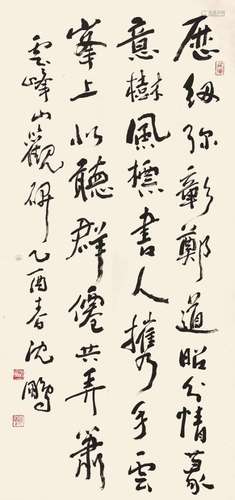 歷劫弥彰鄭道昭分情篆
意樹風標書人携手雲
峯上似聽群僊共弄簫
雲峰山觀碑 乙酉春沈鵬